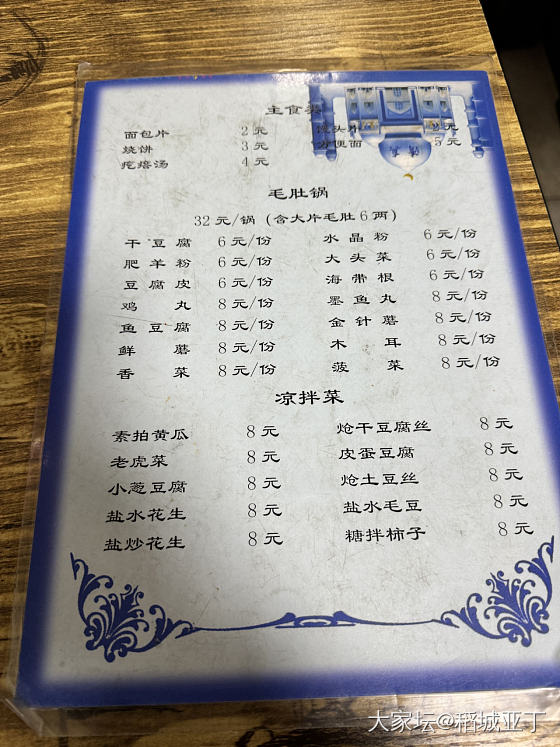 主食类
面包片 2元 馒头片 2元
烧饼 3元 方便面 5元
疙瘩汤 4元
毛肚锅
32元/锅（含大片毛肚6两）
干豆腐 6元/份 水晶粉 6元/份
肥羊粉 6元/份 大头菜 6元/份
豆腐皮 6元/份 海带根 6元/份
鸡丸 8元/份 墨鱼丸 8元/份
鱼豆腐 8元/份 金针蘑 8元/份
鲜蘑 8元/份 木耳 8元/份
香菜 8元/份 菠菜 8元/份
凉拌菜
素拍黄瓜 8元 炝干豆腐丝 8元
老虎菜 8元 皮蛋豆腐 8元
小葱豆腐 8元 炝土豆丝 8元
盐水花生 8元 盐水毛豆 8元
盐炒花生 8元 糖拌柿子 8元
大家坛@稻城亚丁